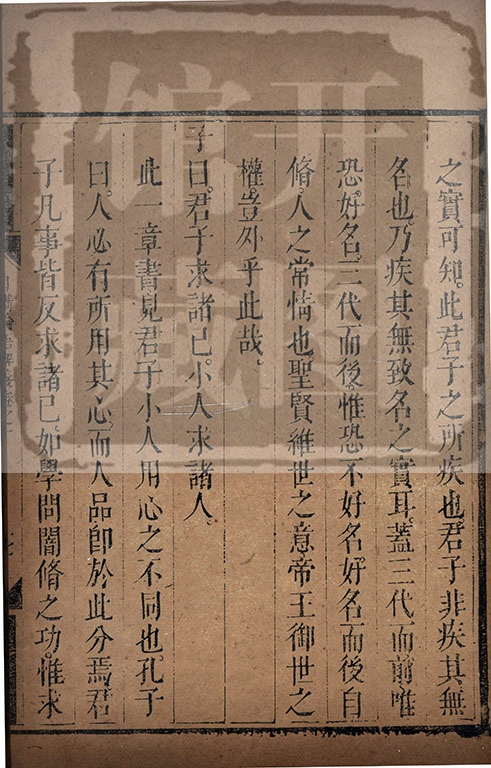 之實可知。此君子之所疾也。君子非疾其無
名也。乃疾其無致名之實耳。蓋三代而前。唯
恐好名。三代而後。惟恐不好名。好名而後自
脩。人之常情也。聖賢維世之意。帝王御世之
權。豈外乎此哉。
子曰。君子求諸己。小人求諸人。
此一章書見君子小人用心之不同也。孔子
曰。人必有所用其心。而人品卽於此分焉。君
子凡事皆反求諸己。如學問闇脩之功。惟求
開
圖
館
藏